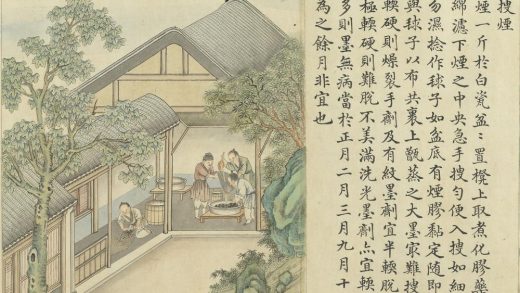 搜煙
煙一斤於白瓷盆〻置櫈上取煮化膠藥
綿濾下煙之中央急手搜勻便入搜如細
勿濕捻作球子如盆底有煙膠黏定隨即
與球子以布共裹上甑蒸之大墨㝡難搜
輭硬則燥裂手劑及有紋墨劑宜半輭脫
極輭硬則難脫不美滿洗光墨劑亦宜輭
多則墨無病當於正月二月三月九月十
為之餘月非宜也